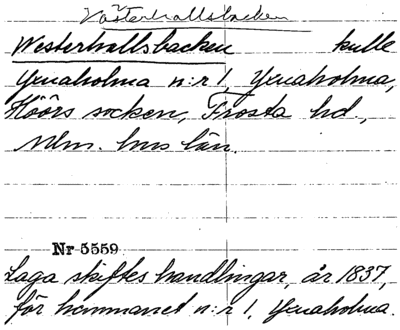 Västerhallsbacken
Westerhallsbacken kulle
Ynaholma n:r 1, Ynaholma,
Höörs socken, Frosta hd.,
Mlm. hus län.
Nr 5559
Laga skiftes handlingar, år 1837,
för hemmanet n:r 1, Ynaholma.